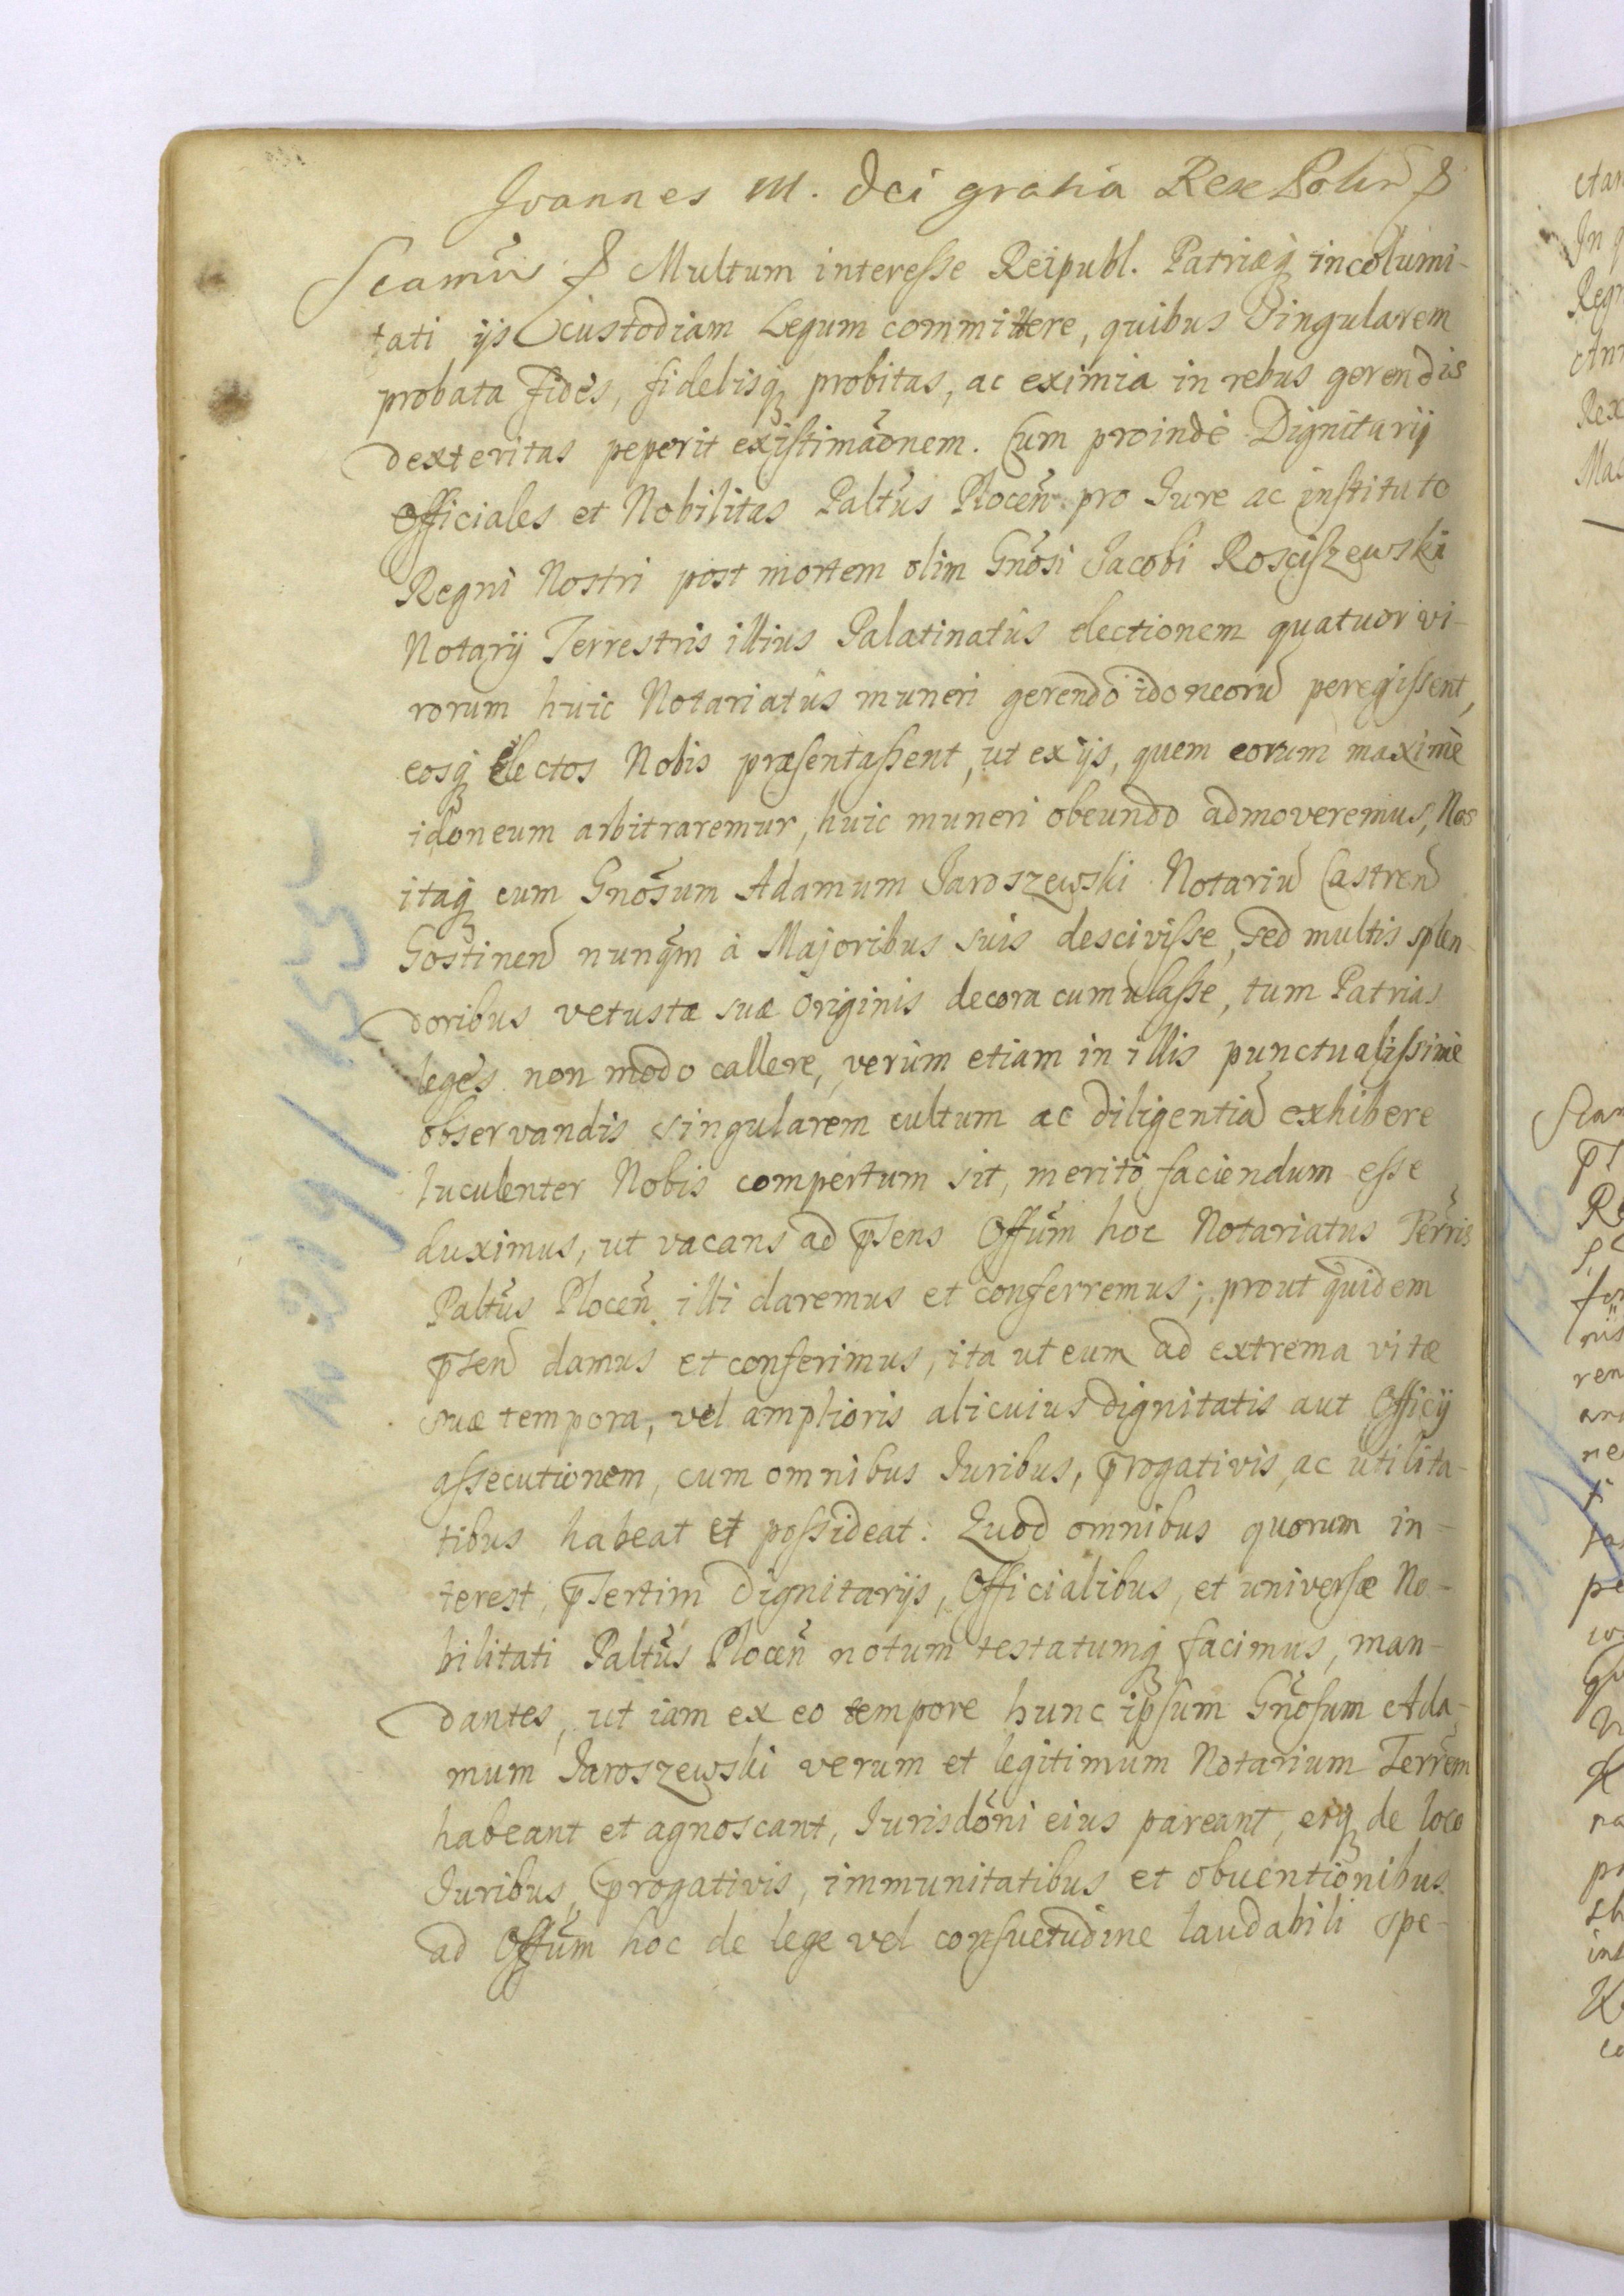 Joannes III. Dei gratia Rex Polon̄ &
Scamūs & Multum interesse Reipubl. Patriæq; incolumi-
tati ijs custodiam Legum committere, quibus singularem
probata fides, fidelisq; probitas, ac eximia in rebus gerendis
dexteritas peperit existimāonem. Cum proindè Dignitarij
Officiales et Nobilitas Paltūs Plocen̄ pro Jure ac instituto
Regni Nostri post mortem olim Gnōsi Jacobi Rosciszewski
Notarij Terrestris illius Palatinatûs electionem quatuor vi-
rorum huic Notariatûs muneri gerendo idoneorū peregissent,
eosq; electos Nobis præsentassent, ut ex ijs, quem eorum maximè
idoneum arbitraremur, huic muneri obeundo admoveremus, Nos
itaq; cum Gnōsum Adamum Jaroszewski Notariū Castren̄
Gostinen̄ nunq̄m à Majoribus suis descivisse, sed multis splen-
doribus vetustæ suæ originis decora cumulasse, tum Patrias
leges non modo callere, verùm etiam in illis punctualissimè
observandis singularem cultum ac diligentiā exhibere
luculenter Nobis compertum sit, meritò faciendum esse
duximus, ut vacans ad p̄sens Offūm hoc Notariatus Terr̄ris
Paltūs Plocen̄ illi daremus et conferremus; prout quidem
p̄sen̄ damus et conferimus, ita ut eum ad extrema vitæ
suæ tempora, vel amplioris alicuius dignitatis aut Officij
assecutionem, cum omnibus Juribus, p̄rogativis, ac utilita-
tibus habeat et possideat. Quod omnibus quorum in-
terest, p̄sertim Dignitarijs, Officialibus, et universæ No-
bilitati Paltūs Plocen̄ notum testatumq; facimus, man-
dantes, ut iam ex eo tempore hunc ipsum Gnōsum Ada-
mum Jaroszewski verum et legitimum Notarium Terr̄em
habeant et agnoscant, Jurisdōni eius pareant, eiq; de loco
Juribus, p̄rogativis, immunitatibus et obventionibus
ad Offūm hoc de lege vel consuetudine laudabili spe-